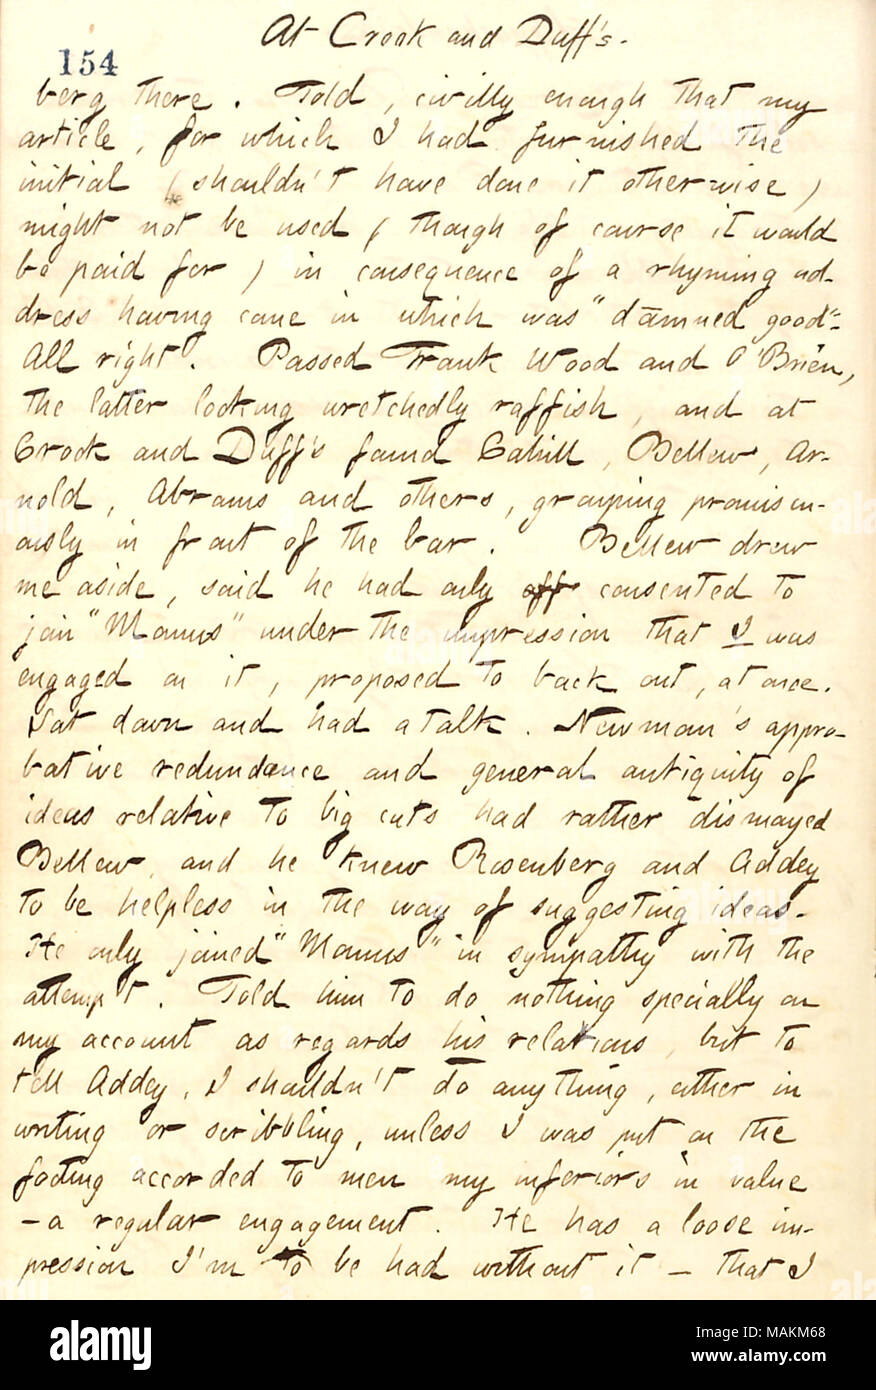 At Crook and Duff's.
154
berg there. Told, civilly enough that my
article, for which I had furnished the
initial (shouldn't have done it otherwise)
might not be used (though of course it would
be paid for) in consequence of a rhyming ad-
dress having come in which was "damned good"-
All right. Passed Frank Wood and O'Brien,
the latter looking wretchedly raffish, and at
Crook and Duff's found Cahill, Bellew, Ar-
nold, Abrams and others, grouping promiscu-
ously in front of the bar. Bellew drew
me aside, said he had only off consented to
join "Momus" under the impression that I was
engaged on it, proposed to back out, at once.
Sat down and had a talk. Newman's appro-
bative redundance and general antiquity of
ideas relative to big cuts had rather dismayed
Bellew, and he knew Rosenberg and Addey
to be helpless in the way of suggesting ideas.
He only joined "Momus" in sympathy with the
attempt. Told him to do nothing specially on
my account as regards his relations, but to
tell Addey, I shouldn't do anything, either in
writing or scribbling, unless I was put on the
footing accorded to men my inferiors in value
- a regular engagement. He has a loose im-
pression I'm to be had without it - that I
alamy
Image ID: MAKM68
www.alamy.com